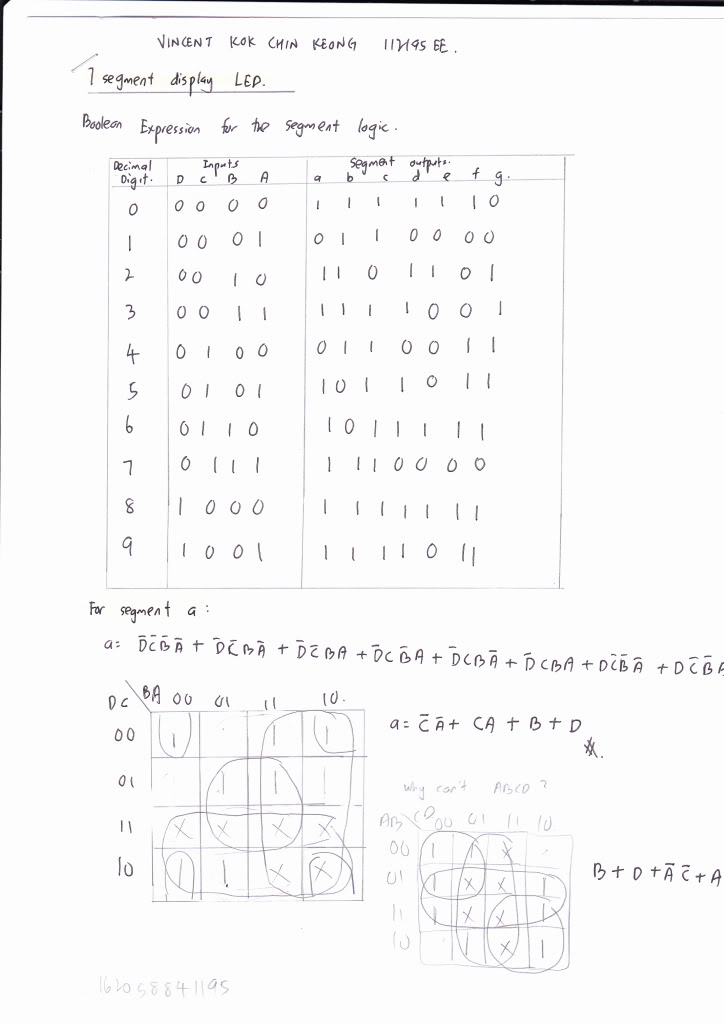 VINCENT KOK CHIN KEONG 112195 EE.
7 segment display LED.
Boolean Expression for the segment logic.
Decimal Digit. Inputs Segment outputs.
D C B A a b c d e f g.
0 0 0 0 0 1 1 1 1 1 1 0
1 0 0 0 1 0 1 1 0 0 0 0
2 0 0 1 0 1 1 0 1 1 0 1
3 0 0 1 1 1 1 1 1 0 0 1
4 0 1 0 0 0 1 1 0 0 1 1
5 0 1 0 1 1 0 1 1 0 1 1
6 0 1 1 0 1 0 1 1 1 1 1
7 0 1 1 1 1 1 1 0 0 0 0
8 1 0 0 0 1 1 1 1 1 1 1
9 1 0 0 1 1 1 1 1 0 1 1
For segment a:
a = D̄C̄B̄Ā + D̄C̄BĀ + D̄C̄BA + D̄CB̄A + D̄CBĀ + D̄CBA + DC̄B̄Ā + DC̄B̄A
DC BA 00 01 11 10.
00 1 1 1
01 1 1 1
11 X X X X
10 1 1 X X
a = C̄Ā + CA + B + D
Why can't ABCD?
AB CD 00 01 11 10
00 1 1 X
01 1 X X 1
11 1 X X 1
10 1 X 1
B + D + ĀC̄ + A
162058841195